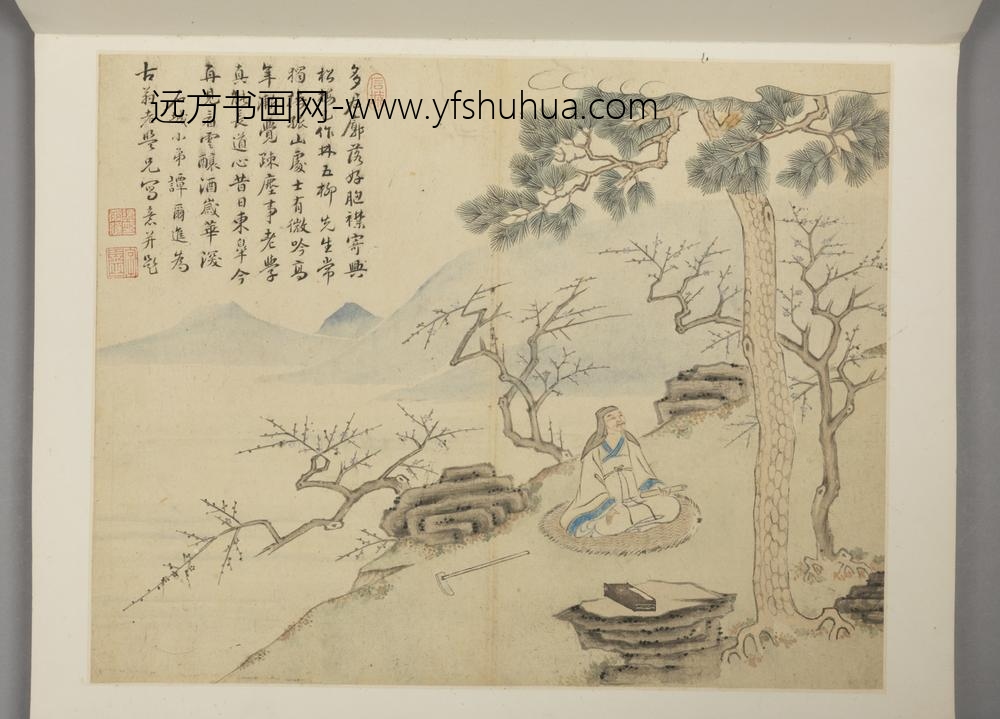 多君廓落好胸襟寄興
松　作林五柳先生常
獨　山處士有微吟高
年　覺疎塵事老學
真　道心昔日東皋今
再見　雲釀酒歲華深
小弟譚爾進為
古翁老學兄寫意并題
远方书画网-www.yfshuhua.com